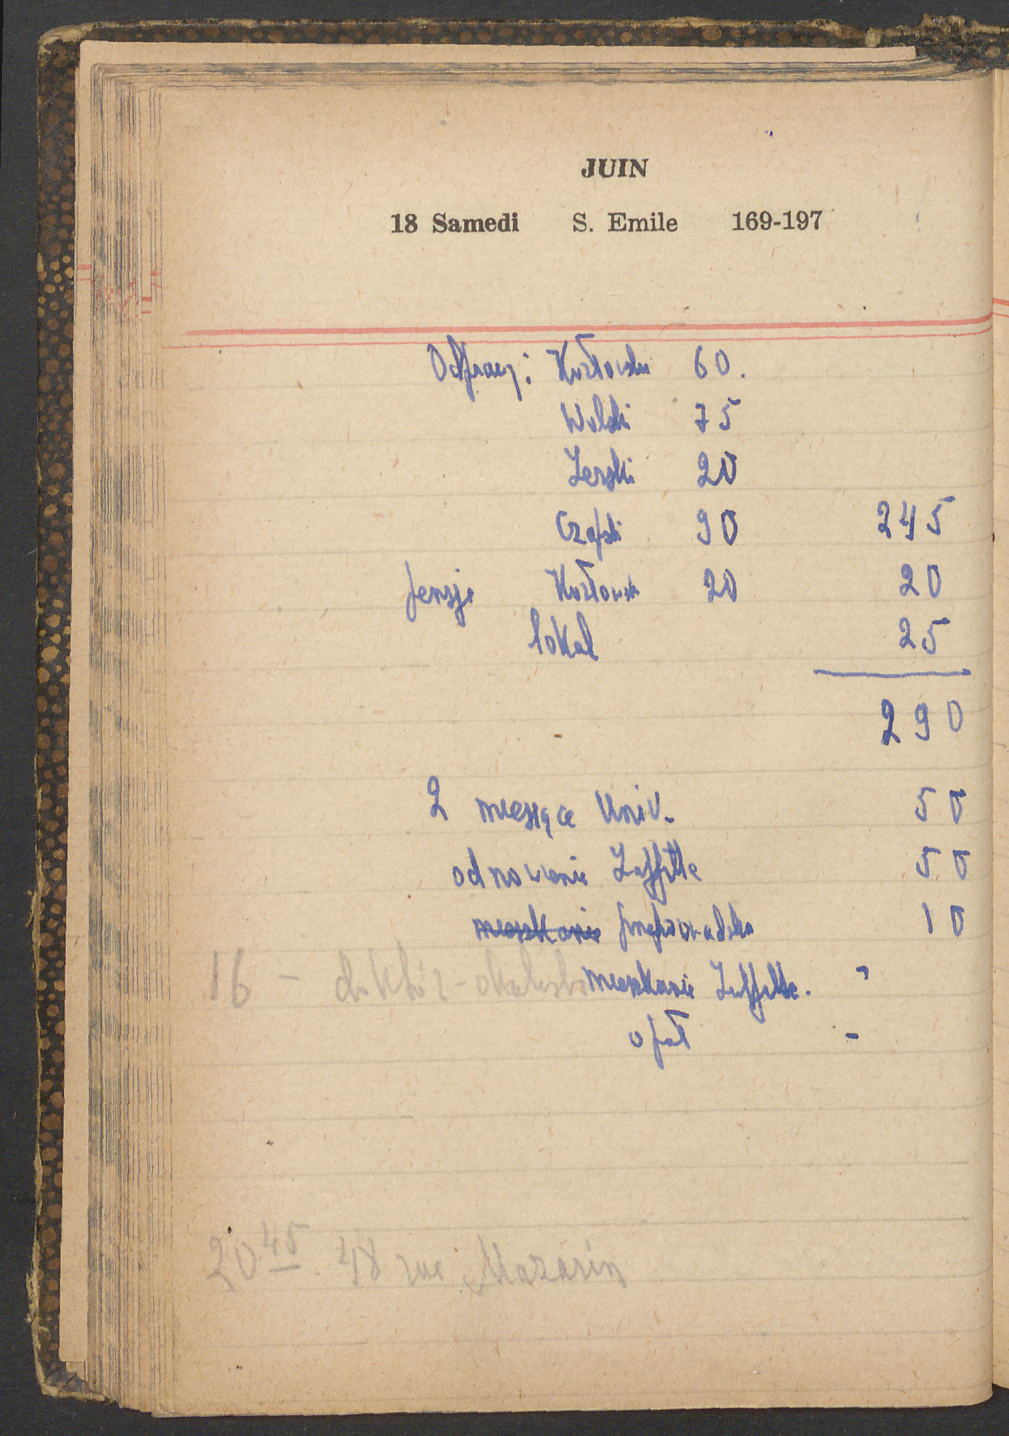 JUIN
18 Samedi S. Emile 169-197
Odprawy: Kozłowski 60.
Wolski 75
Zerski 20
Czapski 90 245
pensje Kozłowsk 20 20
lokal 25
290
2 miesiące Univ. 50
odnowienie Laffitte 50
mieszkanie przeprowadzka 10
16 – doktór - okulista
mieszkanie Laffitte. ?
opał -
20 45 48 rue Mazarin